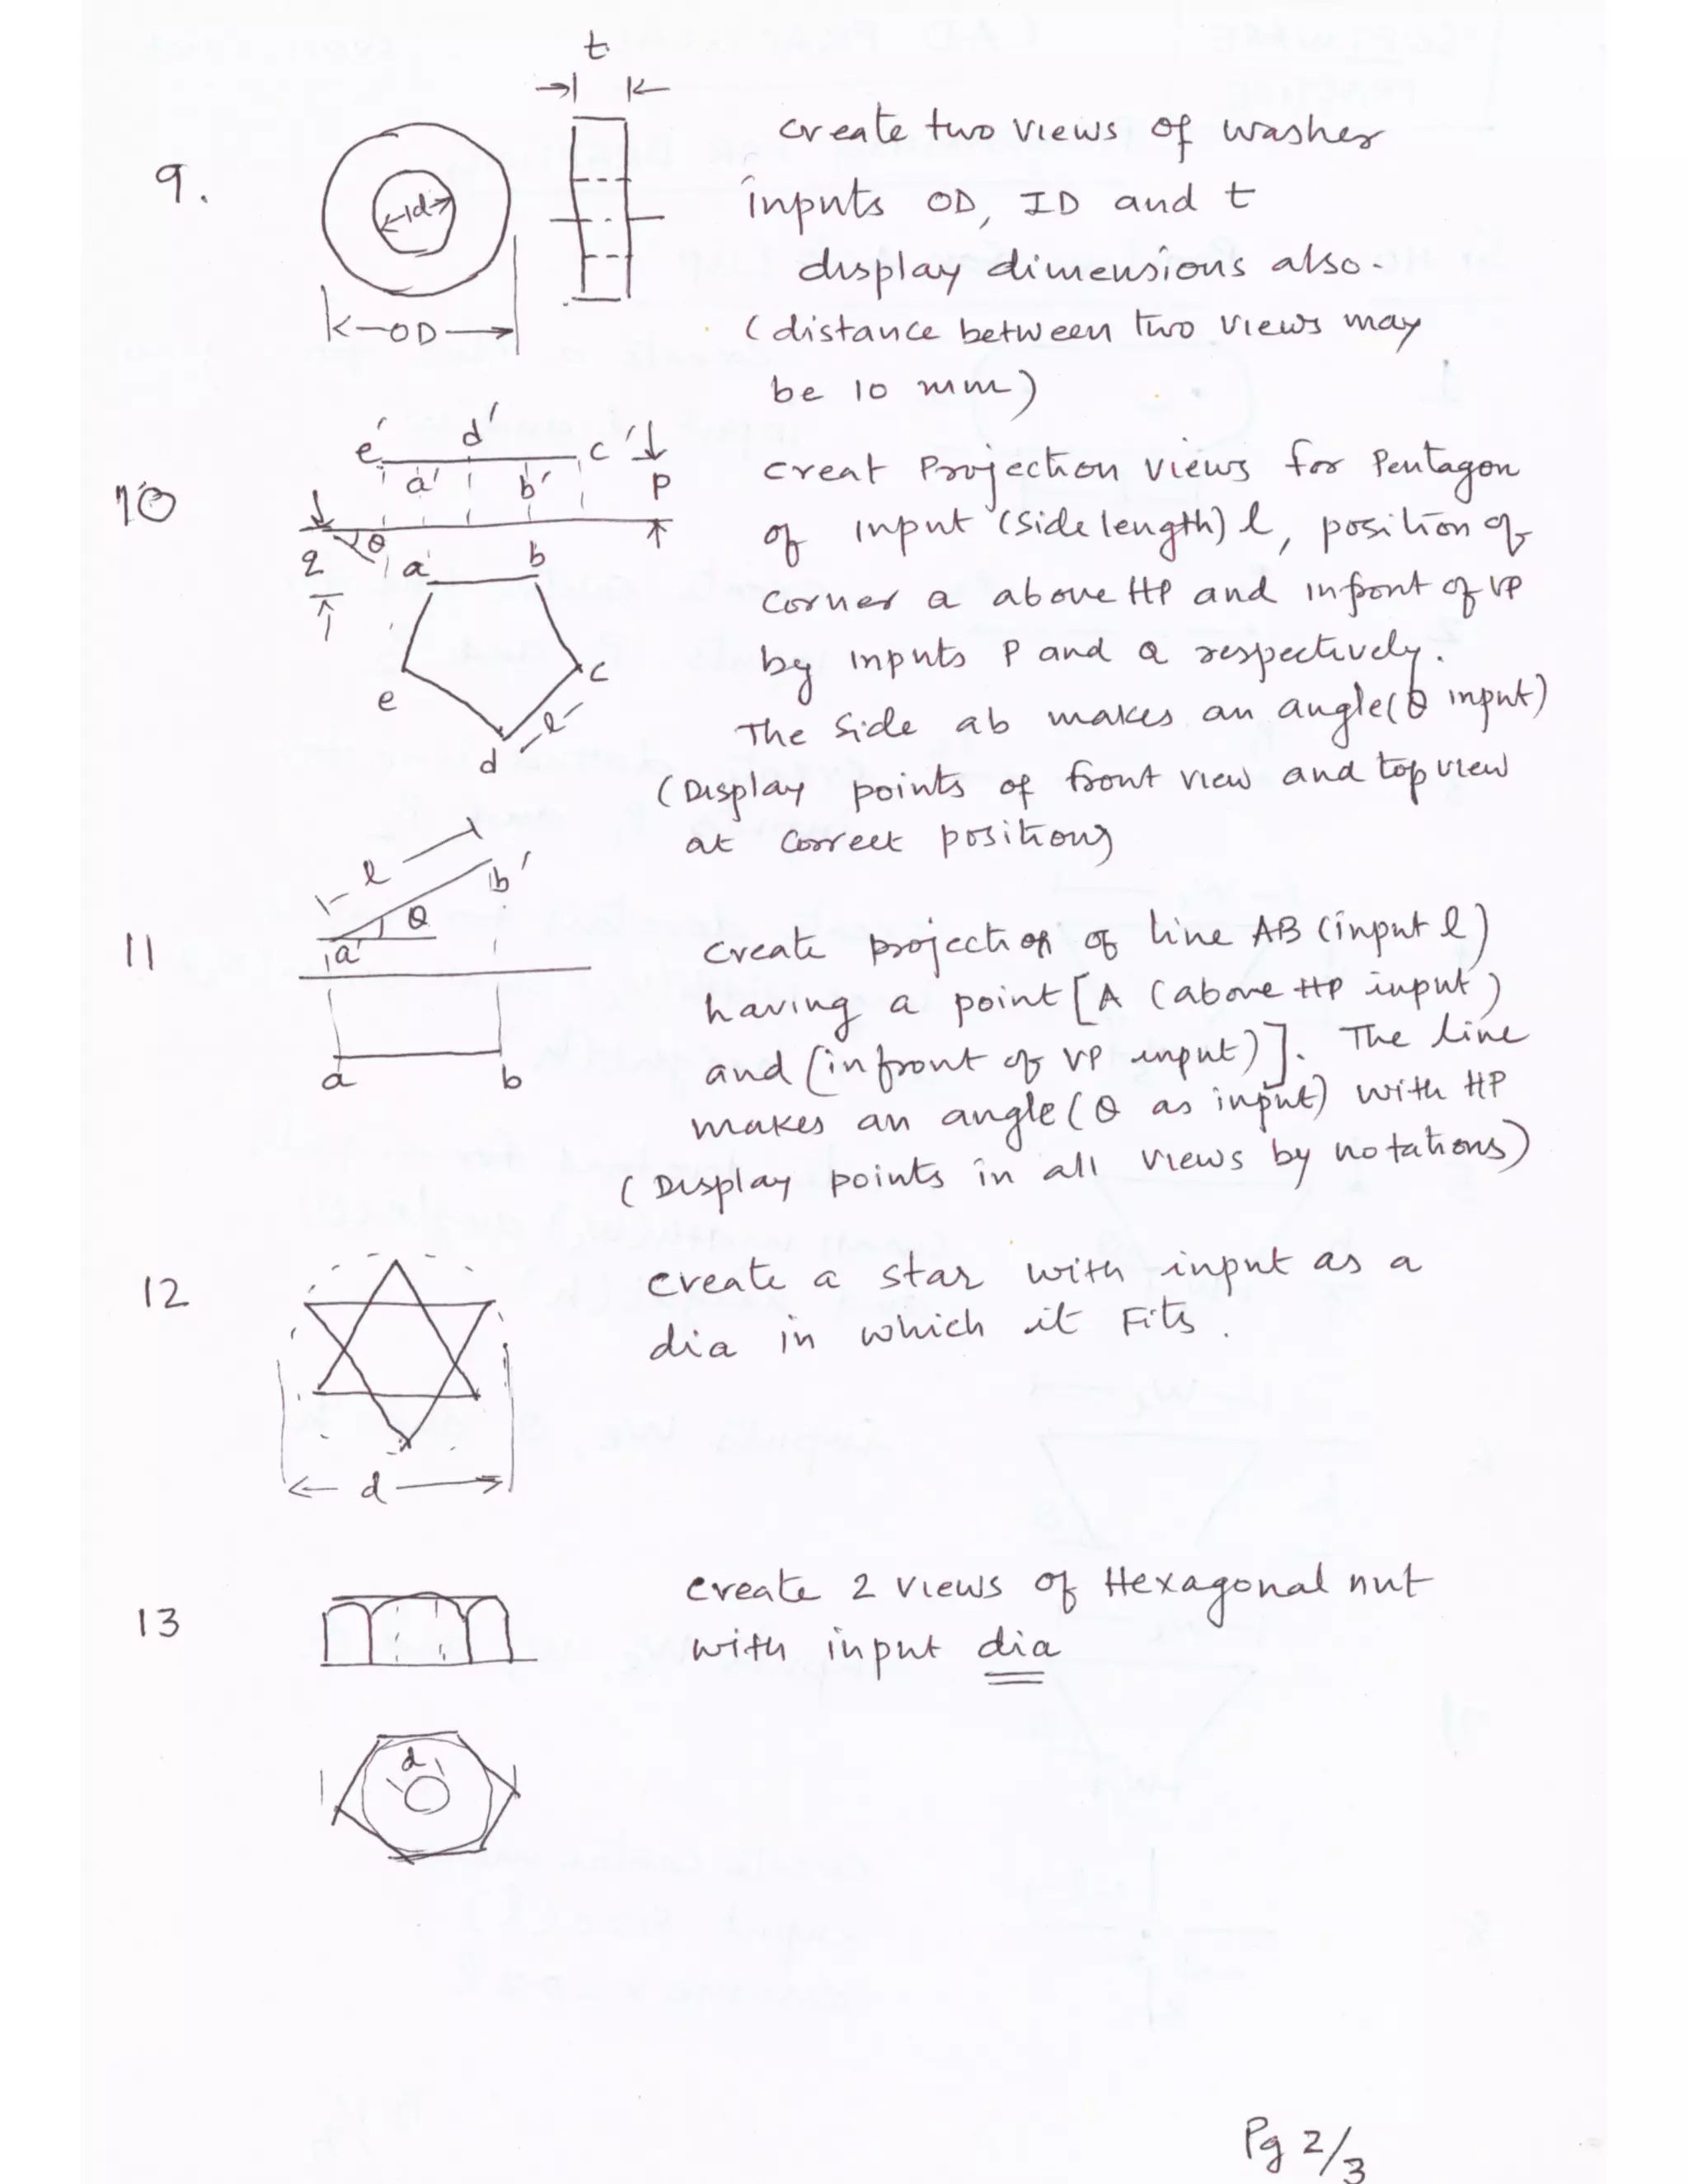 t
9.
id
OD
create two views of washer
inputs OD, ID and t
display dimensions also.
(distance between two views may
be 10 mm)
10
e' d' c'
a' b' P
θ
q
a b
e c
d l
creat Projection views for Pentagon
of input (side length) l, position of
corner a above HP and infont of VP
by inputs P and Q respectively.
The side ab makes an angle(θ input)
(Display points of front view and top view
at correct positions)
11
l
b'
θ
a'
a b
create projection of line AB (input l)
having a point [A (above HP input)
and (infront of VP input)]. The line
makes an angle (θ as input) with HP
(Display points in all views by notations)
12
d
create a star with input as a
dia in which it Fits.
13
create 2 views of Hexagonal nut
with input dia
d
Pg 2/3